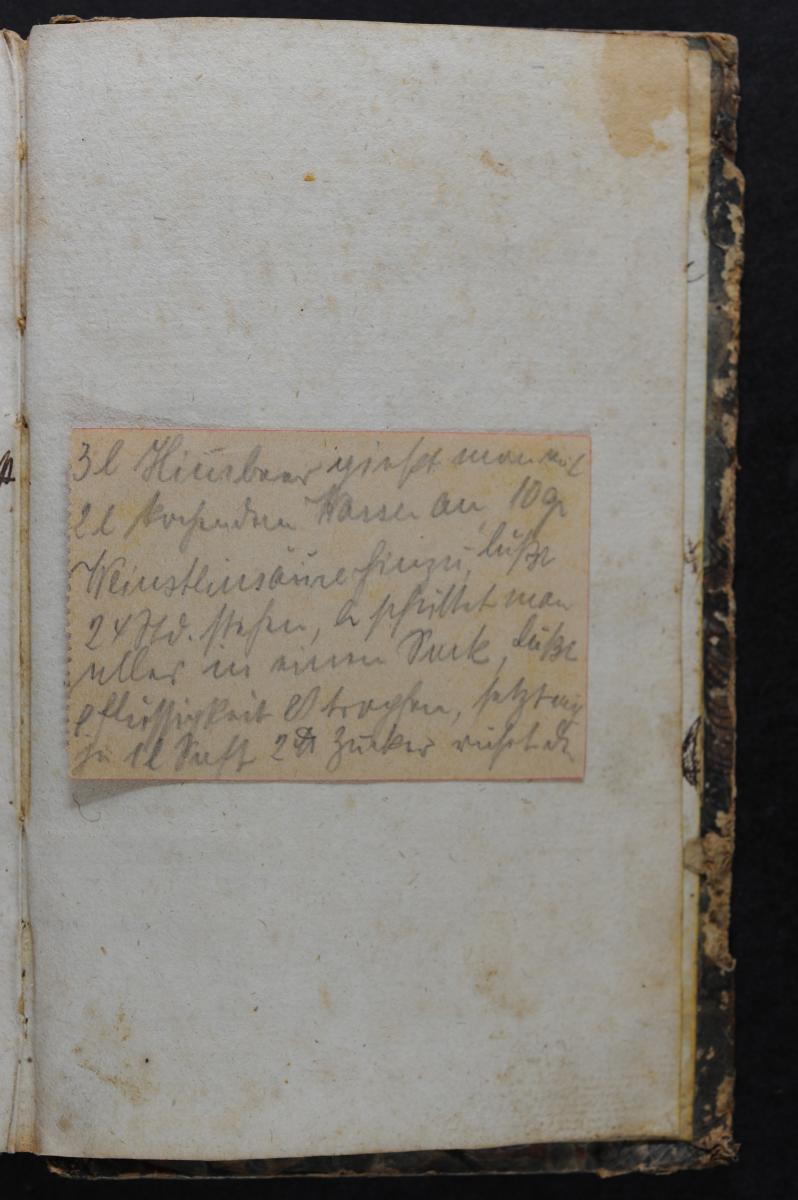 3 l Himbeer gießt man mit
2 l kochendem Wasser an, 10 gr
Weinsteinsäure hinzu, läßt
24 Std. stehen, schüttet man
alles in einen Sack, läßt
Flüssigkeit tropfen, setzt
zu 1 l Saft 2 ℔ Zucker rührt